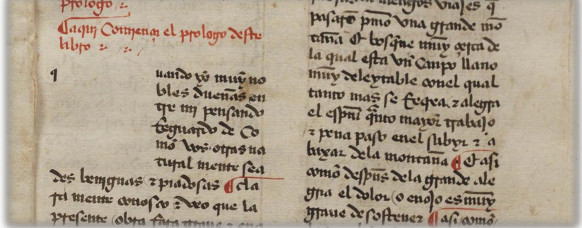 prologo
¶aqui Comiençan el prologo deste
libro
uando yo muy no
bles dueñas en
tre mi pensando
Reguardo de Co
mo vos otras na
tural mente sea
des benignas & piadosas ¶ cla
ra mente conosco & veo que la
presente obra sera graue
viajes q̃
pasarõ pmo vna grande mõ
taña & bosque muy çerca de
la qual esta vn Campo llano
muy deleytable conel qual
tanto mas se & alegra
el espũ qñto mayor trabajo
& pena paso enel subyr & a
baxar dela montaña ¶ & asi
como despũs dela grande ale
gra el dolor o enojo es muy
graue de sostener ¶ asi como